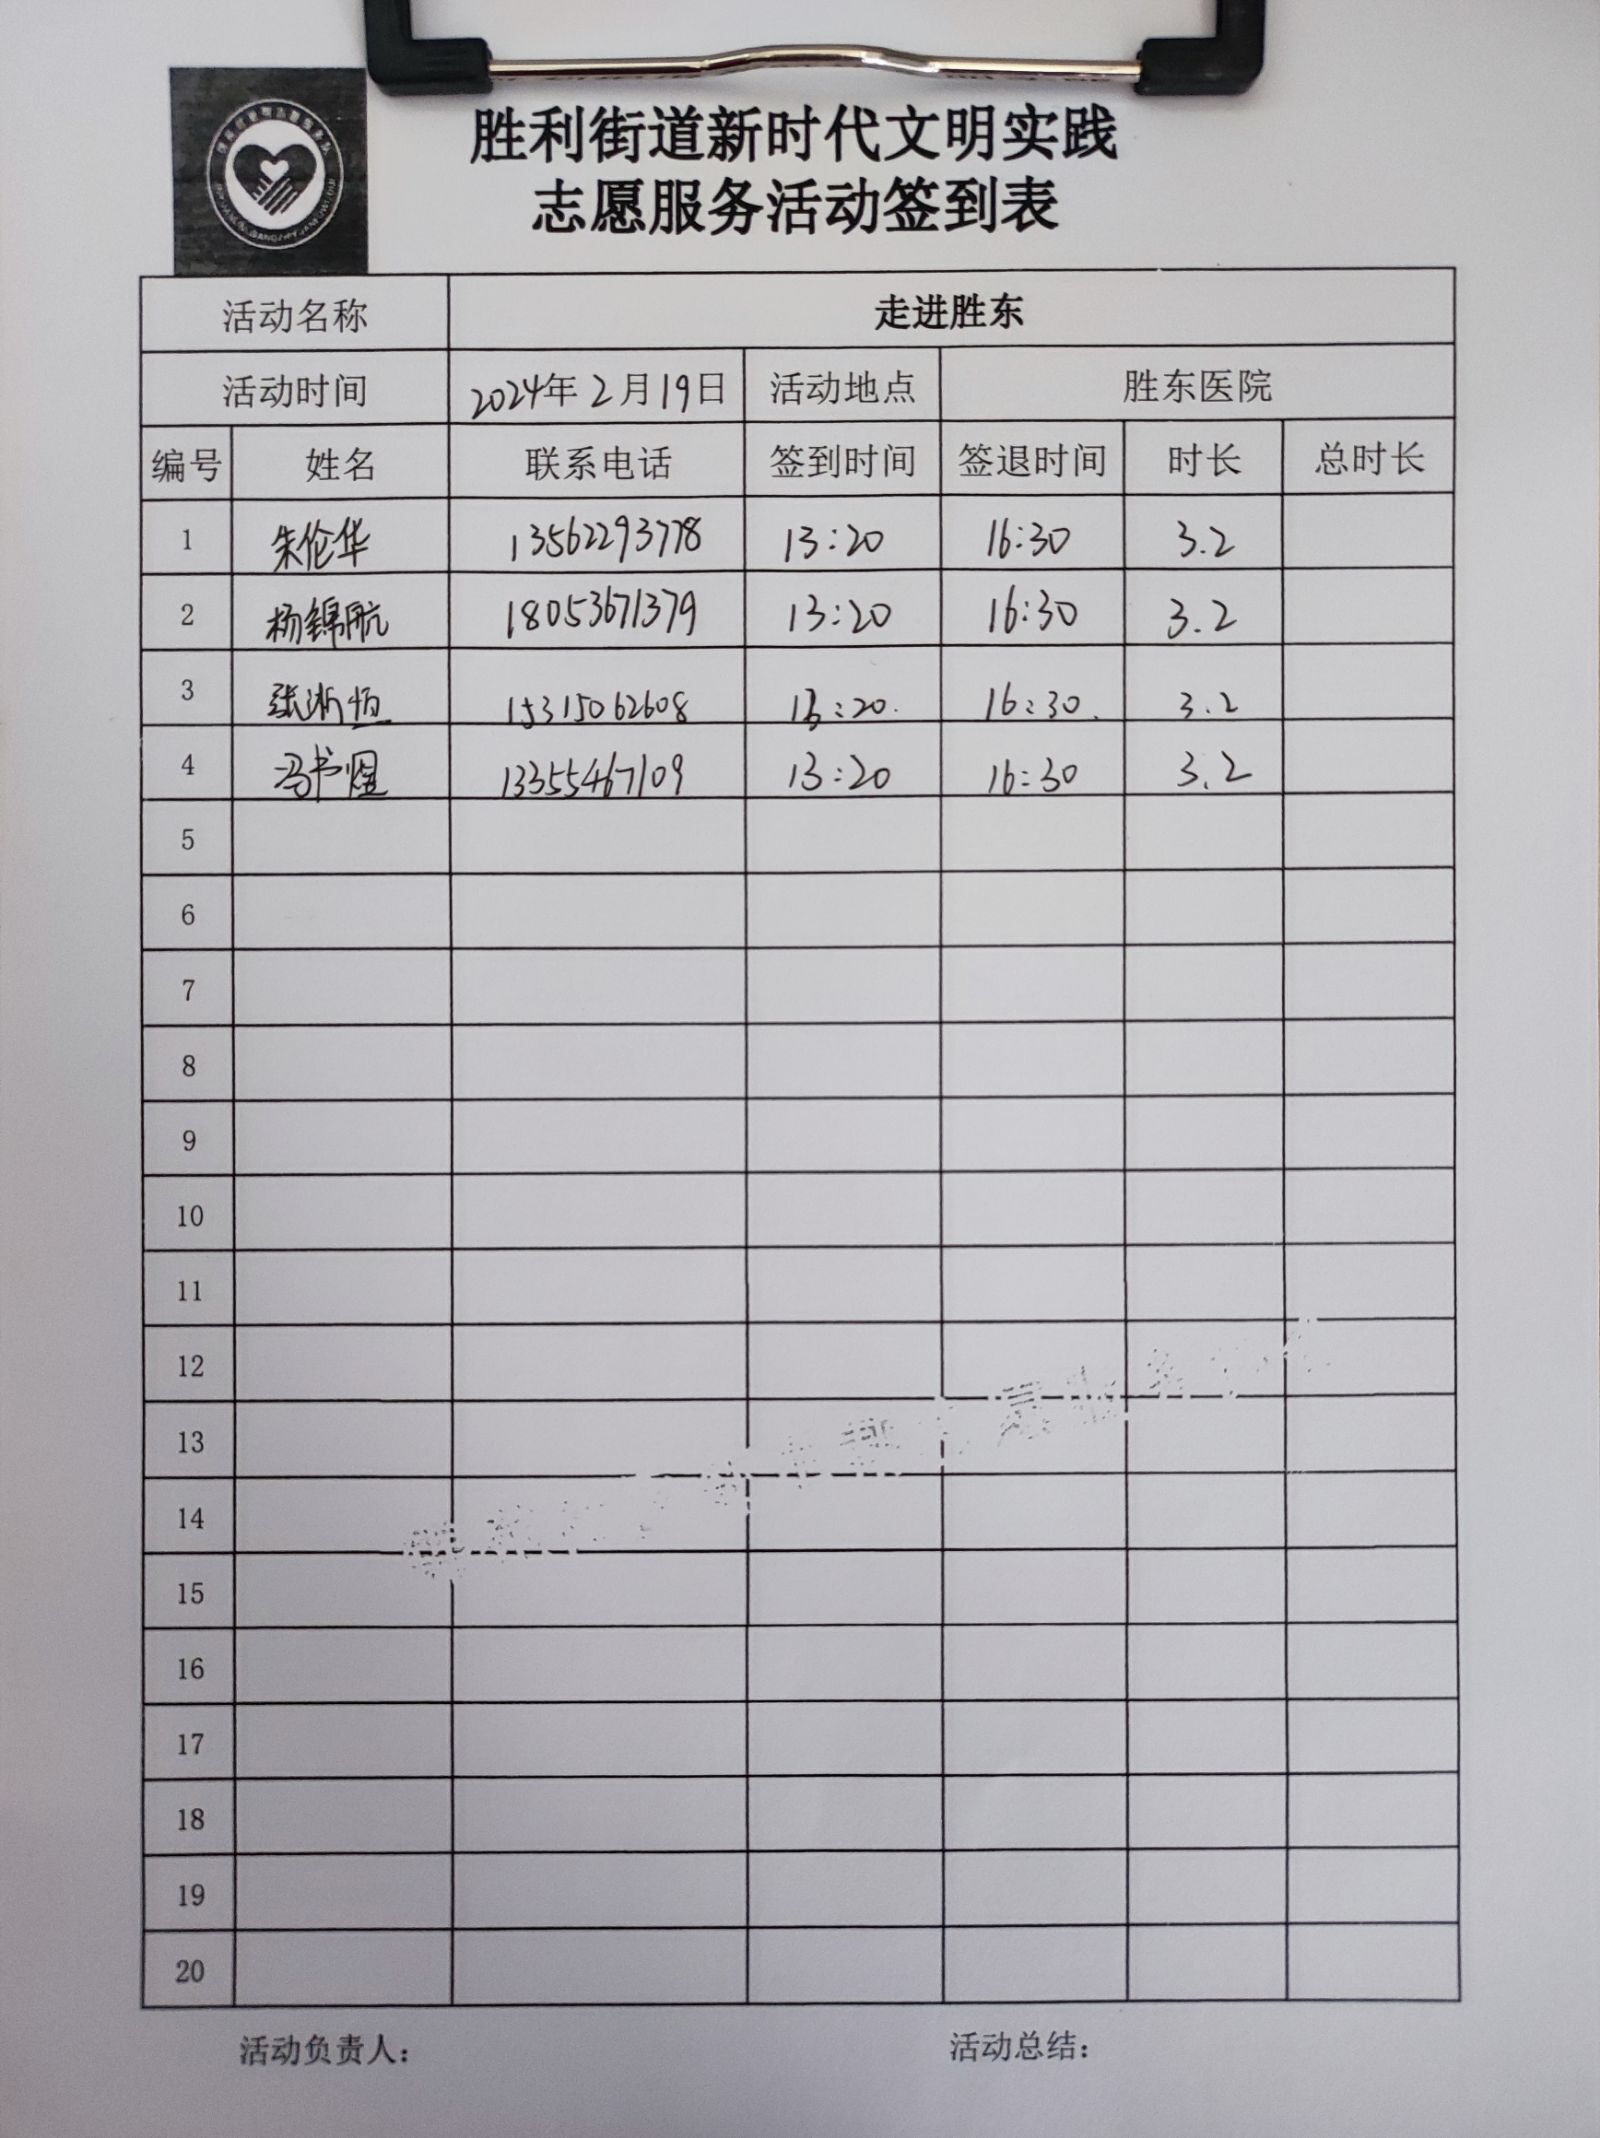 胜利街道新时代文明实践
志愿服务活动签到表
活动名称 走进胜东
活动时间 2024年2月19日 活动地点 胜东医院
编号 姓名 联系电话 签到时间 签退时间 时长 总时长
1 朱伦华 13562293778 13:20 16:30 3.2
2 杨锦航 18053671379 13:20 16:30 3.2
3 张淅恒 15315062608 13:20. 16:30. 3.2
4 冯书煜 13355467109 13:20 16:30 3.2
5
6
7
8
9
10
11
12
13
14
15
16
17
18
19
20
活动负责人： 活动总结：